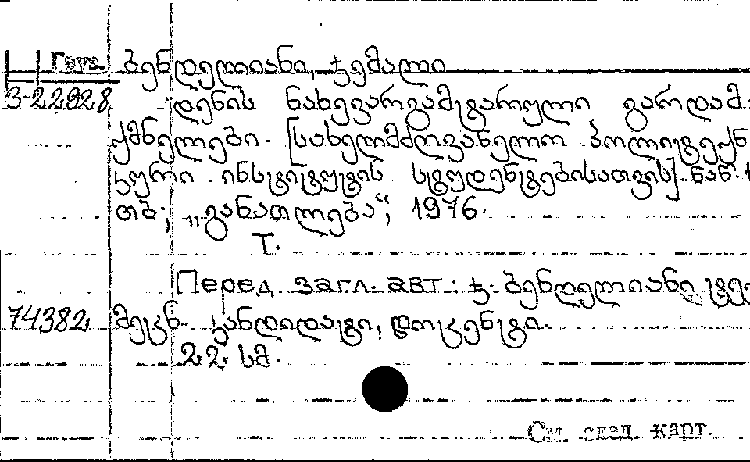 Груз. ბენდელიანი, ჯემალი
3-22928 დენის ნახევარგამტარული გარდამ-
ქმნელები. [სახელმძღვანელო პოლიტექნ
იკური ინსტიტუტის სტუდენტებისათვის]. ნაწ. 1
თბ., „განათლება“, 1976.
Т.
Перед загл. авт.: ჯ. ბენდელიანი
74382 მეცნ. კანდიდატი, დოცენტი.
22 სმ.
См. след. карт.